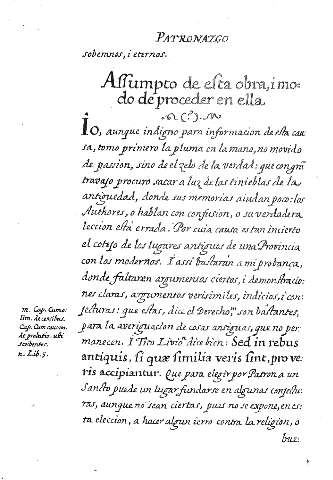 PATRONAZGO
sobemnos, i eternos.
Assumpto de esta obra, i mo-
do de proceder en ella.
Io, aunque indigno para informacion de esta cau
sa, tomo primero la pluma en la mano, no movido
de passion, sino de el zelo de la verdad: que con grã
travajo procuro sacar a luz de las tinieblas de la
antiguedad, donde sus memorias aiudan poco: los
Authores, o hablan con confusion, o su verdadera
leccion está errada. Por cuia causa estan incierto
el cotejo de los lugares antiguos de una Provincia
con los modernos. I assi bastarán a mi probança,
donde faltaren argumentos ciertos, i demonstracio-
nes claras, argumentos verisimiles, indicios, i con-
jecturas: que estas, dice el Derecho, son bastantes,
para la averiguacion de cosas antiguas, que no per-
manecen. I Tito Livio dice bien: Sed in rebus
antiquis, si quæ similia veris sint, pro ve-
ris accipiantur. Que para elegir por Patron a un
Sancto puede un lugar fundarse en algunas conjectu-
ras, aunque no sean ciertas, pues no se expone, en es-
ta eleccion, a hacer algun ierro contra la religion, o
bue-
m. Cap. Cume
tim. de censibus.
Cap. Cum causam.
de probatio. ubi
scribentes.
n. Lib. 5.